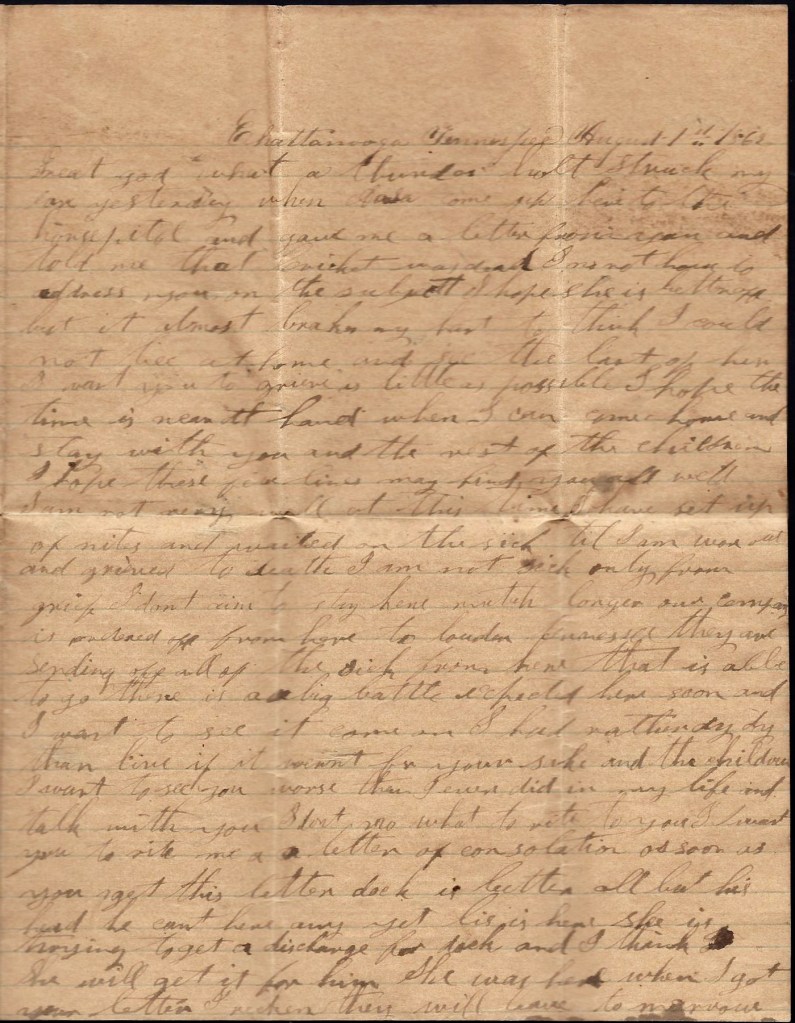 Chattanooga Tennessee August 1st 186
Great god what a thunder bolt struck my
ear yesterday when come up here to the
horspitol and gave me a letter from you and
told me that was dead I no not how to
address you on the subjett I hope she is better off
but it almost brakes my hart to think I could
not bee at home and see the last of her
I want you to grieve as little as possible I hope the
time is near at hand when I can come home and
stay with you and the rest of the children
I hope these few lines may find you all well
I am not very well at this time I have set up
of nites and waited on the sick til I am worn out
and grieved to death I am not sick only from
grief I dont aim to stay here mutch longer our company
is ordered off from here to louden tennessee they are
sending off all of the sick from here that is able
to go there is a big battle expected here soon and
I want to see it come on I had rather dy
than live if it weant for your sake and the children
I want to see you worse than I ever did in my life and
talk with you I dont no what to rite to you I want
you to rite me a letter of consolation as soon as
you get this letter dock is better all but his
he cant here any yet is here she is
trying to get a discharge for dock and I think
she will get it for him she was here when I got
your letter I recken they will leave to morrow